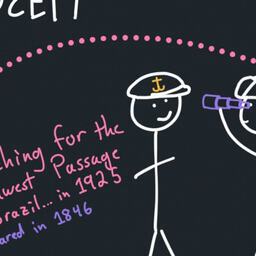 ching for the
west Passage
Brazil... in 1925
ared in 1846